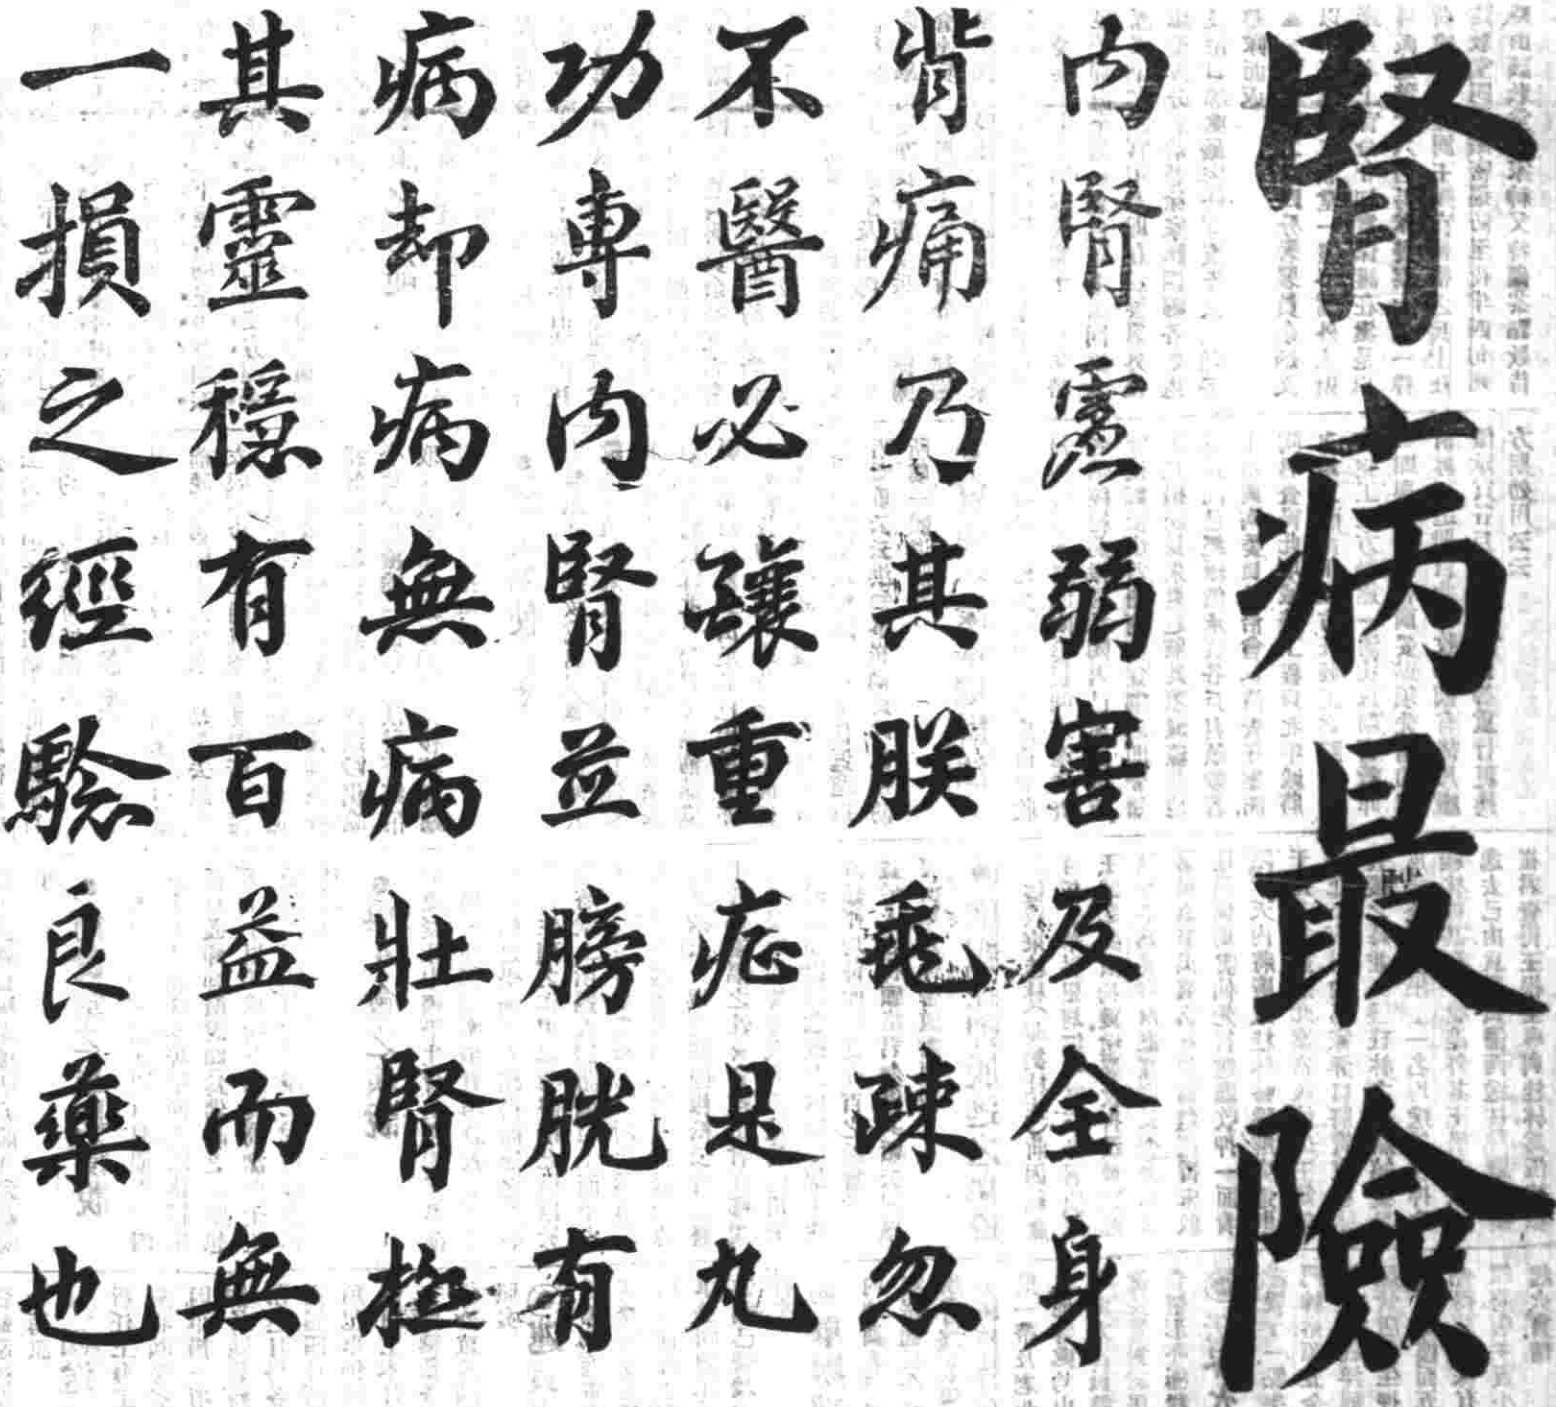 腎病最險
內腎虛弱害及全身
背痛乃其朕兆疎忽
不醫必釀重症是丸
功專內腎並膀胱有
病却病無病壯腎極
其靈穩有百益而無
一損之經驗良藥也